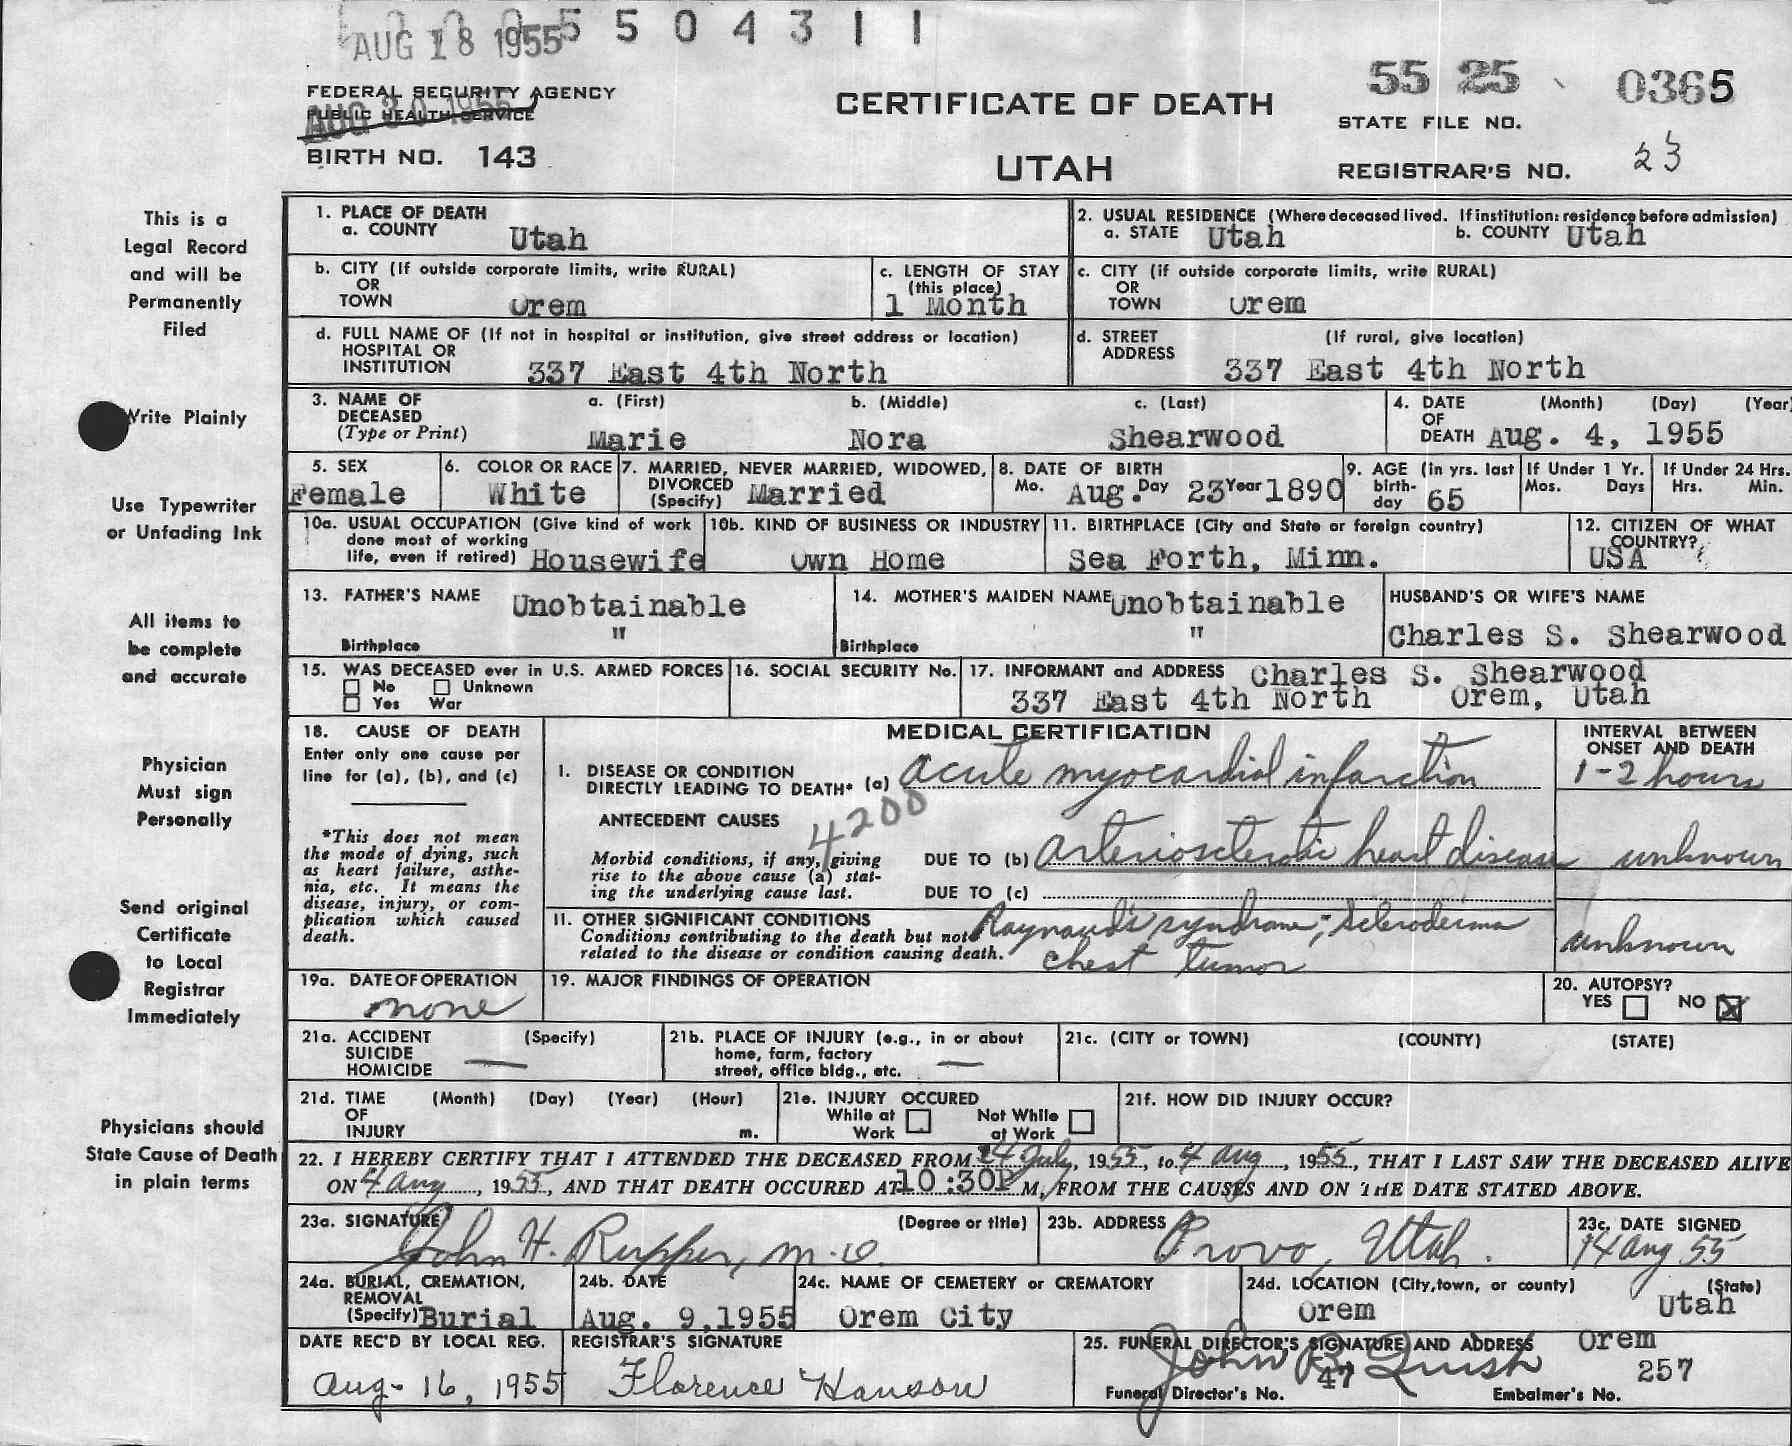 AUG 18 1955 5 5 0 4 3 1 1
FEDERAL SECURITY AGENCY
PUBLIC HEALTH SERVICE
AUG 30 1955
BIRTH NO. 143
CERTIFICATE OF DEATH
UTAH
55 25 0365
STATE FILE NO.
REGISTRAR'S NO. 23
This is a
Legal Record
and will be
Permanently
Filed
Write Plainly
Use Typewriter
or Unfading Ink
All items to
be complete
and accurate
Physician
Must sign
Personally
Send original
Certificate
to Local
Registrar
Immediately
Physicians should
State Cause of Death
in plain terms
1. PLACE OF DEATH
a. COUNTY Utah
2. USUAL RESIDENCE (Where deceased lived. If institution: residence before admission)
a. STATE Utah b. COUNTY Utah
b. CITY (If outside corporate limits, write RURAL)
OR
TOWN Orem
c. LENGTH OF STAY
(this place)
1 Month
c. CITY (if outside corporate limits, write RURAL)
OR
TOWN Orem
d. FULL NAME OF (If not in hospital or institution, give street address or location)
HOSPITAL OR
INSTITUTION 337 East 4th North
d. STREET (If rural, give location)
ADDRESS
337 East 4th North
3. NAME OF a. (First) b. (Middle) c. (Last)
DECEASED
(Type or Print) Marie Nora Shearwood
4. DATE (Month) (Day) (Year)
OF
DEATH Aug. 4, 1955
5. SEX
Female
6. COLOR OR RACE
White
7. MARRIED, NEVER MARRIED, WIDOWED,
DIVORCED
(Specify) Married
8. DATE OF BIRTH
Mo. Aug. Day 23 Year 1890
9. AGE (in yrs. last
birth-
day 65
If Under 1 Yr.
Mos. Days
If Under 24 Hrs.
Hrs. Min.
10a. USUAL OCCUPATION (Give kind of work
done most of working
life, even if retired) Housewife
10b. KIND OF BUSINESS OR INDUSTRY
Own Home
11. BIRTHPLACE (City and State or foreign country)
Sea Forth, Minn.
12. CITIZEN OF WHAT
COUNTRY?
USA
13. FATHER'S NAME Unobtainable
Birthplace "
14. MOTHER'S MAIDEN NAME Unobtainable
Birthplace "
HUSBAND'S OR WIFE'S NAME
Charles S. Shearwood
15. WAS DECEASED ever in U.S. ARMED FORCES
No Unknown
Yes War
16. SOCIAL SECURITY No.
17. INFORMANT and ADDRESS Charles S. Shearwood
337 East 4th North Orem, Utah
18. CAUSE OF DEATH
Enter only one cause per
line for (a), (b), and (c)
*This does not mean
the mode of dying, such
as heart failure, asthe-
nia, etc. It means the
disease, injury, or com-
plication which caused
death.
MEDICAL CERTIFICATION
I. DISEASE OR CONDITION
DIRECTLY LEADING TO DEATH* (a) acute myocardial infarction
ANTECEDENT CAUSES 4200
Morbid conditions, if any, giving
rise to the above cause (a) stat-
ing the underlying cause last.
DUE TO (b) arteriosclerotic heart disease
DUE TO (c)
II. OTHER SIGNIFICANT CONDITIONS
Conditions contributing to the death but not
related to the disease or condition causing death.
Raynaud's syndrome; scleroderma
chest tumor
INTERVAL BETWEEN
ONSET AND DEATH
1-2 hours
unknown
unknown
19a. DATE OF OPERATION
none
19. MAJOR FINDINGS OF OPERATION
20. AUTOPSY?
YES NO X
21a. ACCIDENT (Specify)
SUICIDE
HOMICIDE
21b. PLACE OF INJURY (e.g., in or about
home, farm, factory
street, office bldg., etc.
21c. (CITY or TOWN) (COUNTY) (STATE)
21d. TIME (Month) (Day) (Year) (Hour)
OF
INJURY m.
21e. INJURY OCCURED
While at Not While
Work at Work
21f. HOW DID INJURY OCCUR?
22. I HEREBY CERTIFY THAT I ATTENDED THE DECEASED FROM 24 July, 1955, to 4 Aug, 1955, THAT I LAST SAW THE DECEASED ALIVE
ON 4 Aug, 1955, AND THAT DEATH OCCURED AT 10:30P M, FROM THE CAUSES AND ON THE DATE STATED ABOVE.
23a. SIGNATURE (Degree or title)
John H. Rupper, M.D.
23b. ADDRESS
Provo, Utah.
23c. DATE SIGNED
14 Aug 55
24a. BURIAL, CREMATION,
REMOVAL
(Specify) Burial
24b. DATE
Aug. 9, 1955
24c. NAME OF CEMETERY or CREMATORY
Orem City
24d. LOCATION (City, town, or county) (State)
Orem Utah
DATE REC'D BY LOCAL REG.
Aug- 16, 1955
REGISTRAR'S SIGNATURE
Florence Hanson
25. FUNERAL DIRECTOR'S SIGNATURE AND ADDRESS Orem
John B.
Funeral Director's No. 47
Embalmer's No. 257